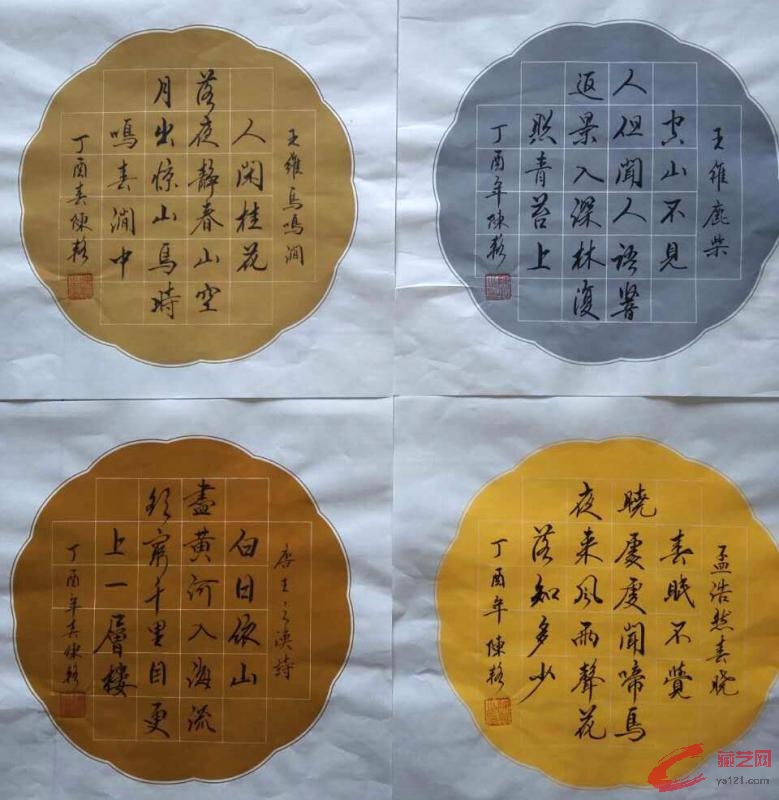 王維鳥鳴澗
人闲桂花
落夜靜春山空
月出惊山鳥時
鳴春澗中
丁酉春陳
王維鹿柴
空山不見
人但聞人語響
返景入深林復
照青苔上
丁酉年陳
唐王之渙詩
白日依山
盡黄河入海流
欲窮千里目更
上一層樓
丁酉年春陳
孟浩然春晓
春眠不覺
晓處處聞啼鳥
夜来風雨聲花
落知多少
丁酉年陳
藏艺网
ys121.com